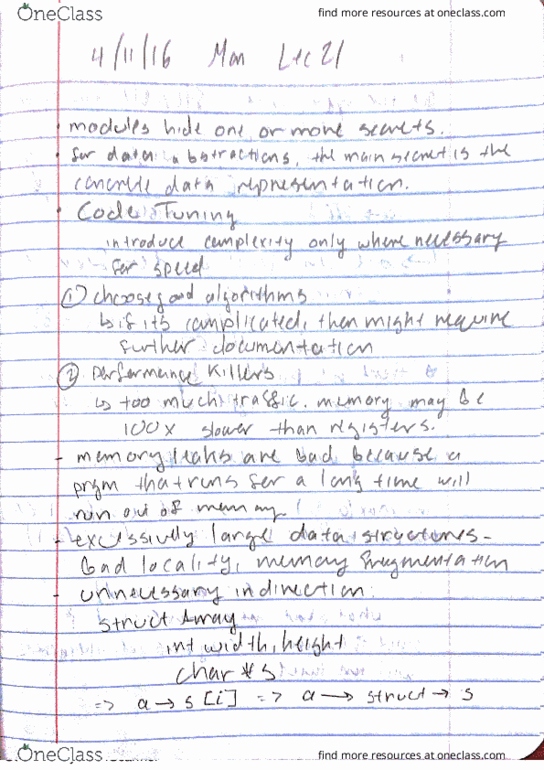 OneClass
find more resources at oneclass.com
4/11/16 Mon Lec 21
• modules hide one or more secrets.
• for data abstractions, the main secret is the
concrete data representation.
• Code Tuning
introduce complexity only where necessary
for speed
① choose good algorithms
↳ if its complicated, then might require
further documentation
② performance killers
↳ too much traffic. memory may be
100x slower than registers.
- memory leaks are bad because a
prgm that runs for a long time will
run out of memory!
- excessively large data structures -
bad locality, memory fragmentation
- unnecessary indirection:
struct Array
int width, height
char * s
=> a → s [i] => a → struct → s
OneClass
find more resources at oneclass.com